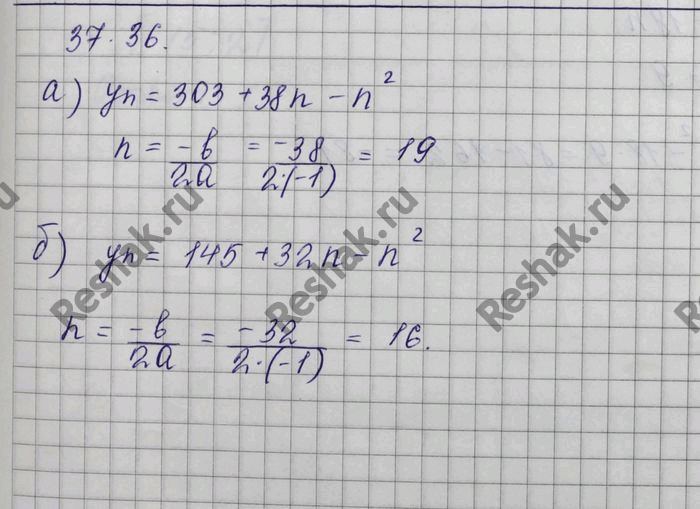 37.36.
а) yn = 303 + 38n - n²
n = -b/2a = -38/2·(-1) = 19
б) yn = 145 + 32n - n²
n = -b/2a = -32/2·(-1) = 16.
Reshak.ru
Reshak.ru
Reshak.ru